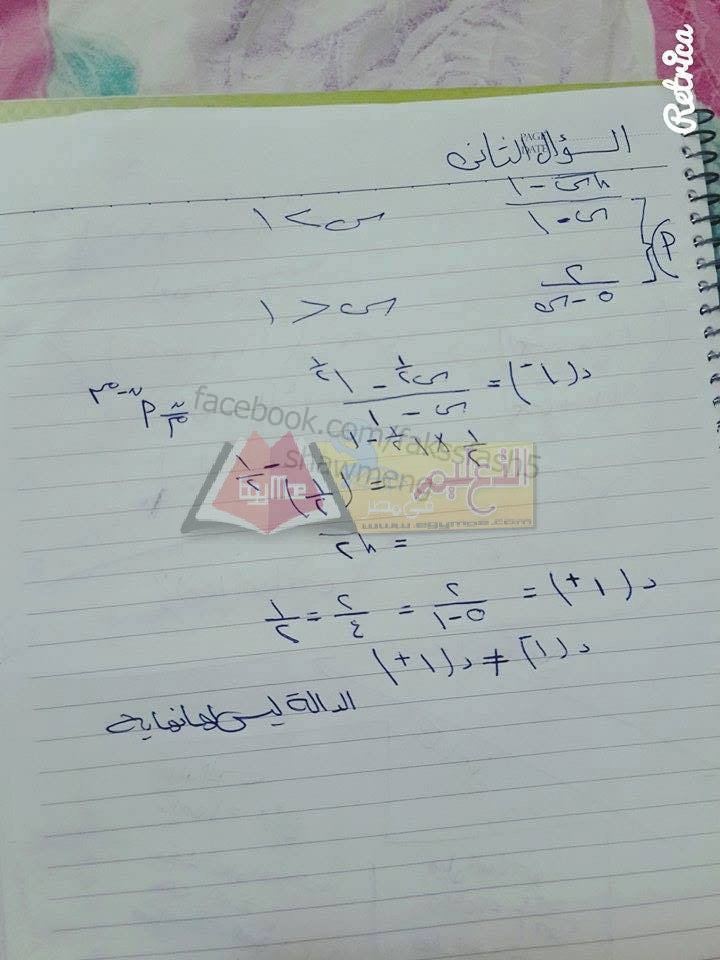 Retrica
PAGE
DATE
السؤال الثانى
أ) { (√س - ١)/(س - ١)   س > ١
٢/(٥ - س)   س < ١
د(١⁻) = (س^(١/٢) - ١^(١/٢))/(س - ١)   ن/م أ^(ن-م)
١/٢ × ١^(١/٢ - ١)
= (١/٢)^(-١/٢)
= √٢
د(١⁺) = ٢/(٥ - ١) = ٢/٤ = ١/٢
د(١⁻) ≠ د(١⁺)
الدالة ليس لها نهاية
facebook.com/
shawmeng
EGYMOE
التعليم
فى مصر
www.egymoe.com